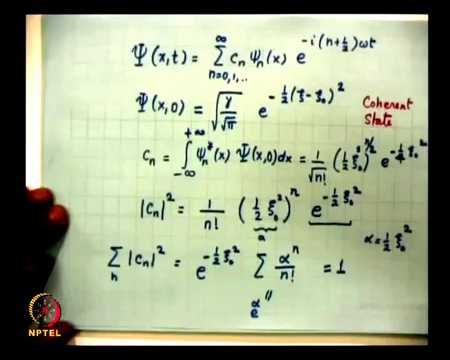 Ψ(x,t) = Σ_{n=0,1,..}^{∞} c_n ψ_n(x) e^{-i(n+½)ωt}
Ψ(x,0) = √(γ/√π) e^{-½(ξ-ξ₀)²}
Coherent State
c_n = ∫_{-∞}^{+∞} ψ_n*(x) Ψ(x,0)dx = 1/√n! (½ξ₀²)^{n/2} e^{-¼ξ₀²}
|c_n|² = 1/n! (½ξ₀²)^n e^{-½ξ₀²}
α
α = ½ξ₀²
Σ_n |c_n|² = e^{-½ξ₀²} Σ αⁿ/n! = 1
"
e^α
NPTEL